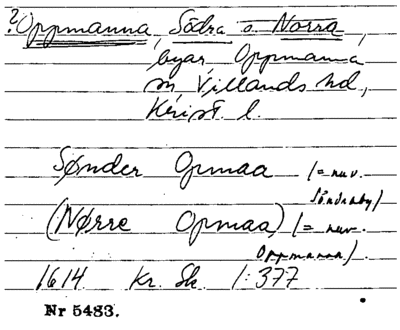 ?Oppmanna, Södra o. Norra,
byar Oppmanna
sn, Villands hd,
Krist. l.
Sønder Opmaa (= nuv.
Söndraby)
(Nørre Opmaa) (= nuv.
Oppmanna).
1614 Kr. Sk. 1:377
Nr 5483.